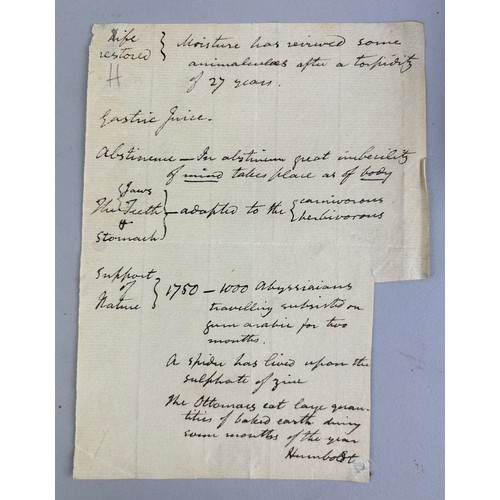 Life } Moisture has revived some
restored } animalcules after a torpidity
H of 27 years.
Gastric Juice.
Abstinence — In abstinence great imbecility
of mind takes place as of body
The { Jaws
Teeth } — adapted to the { carnivorous
& herbivorous
Stomach
Support
of
Nature } 1750 — 1000 Abyssinians
travelling subsisted on
gum arabic for two
months.
A spider has lived upon the
sulphate of zinc
The Ottomacs eat large quan-
tities of baked earth during
some months of the year
Humboldt